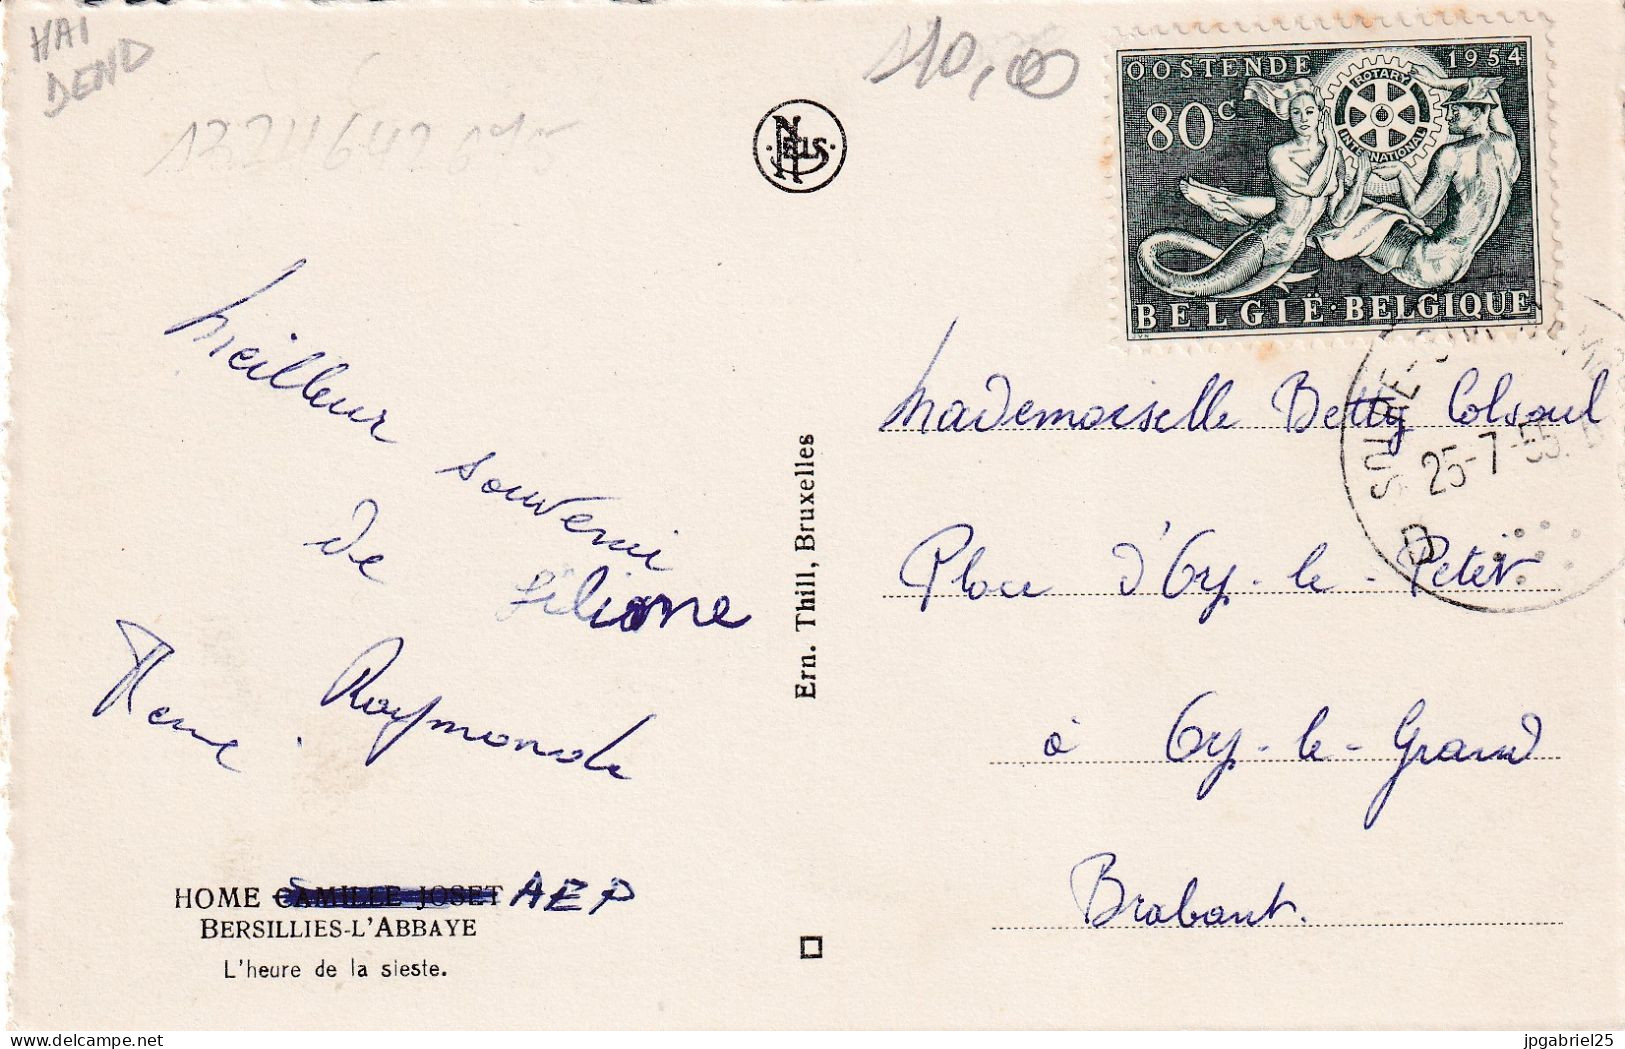 HAI
DEND
110,00
NELS
OOSTENDE 1954
80c
ROTARY
INTERNATIONAL
BELGIË·BELGIQUE
25-7-55
D
Meilleur souvenir
de Liliane
René. Raymonde
Ern. Thill, Bruxelles
Mademoiselle Betty Colsoul
Place d'Op-le-Petit
à Op-le-Grand
Brabant.
HOME CAMILLE JOSET AEP
BERSILLIES-L'ABBAYE
L'heure de la sieste.
delcampe.net
jpgabriel25